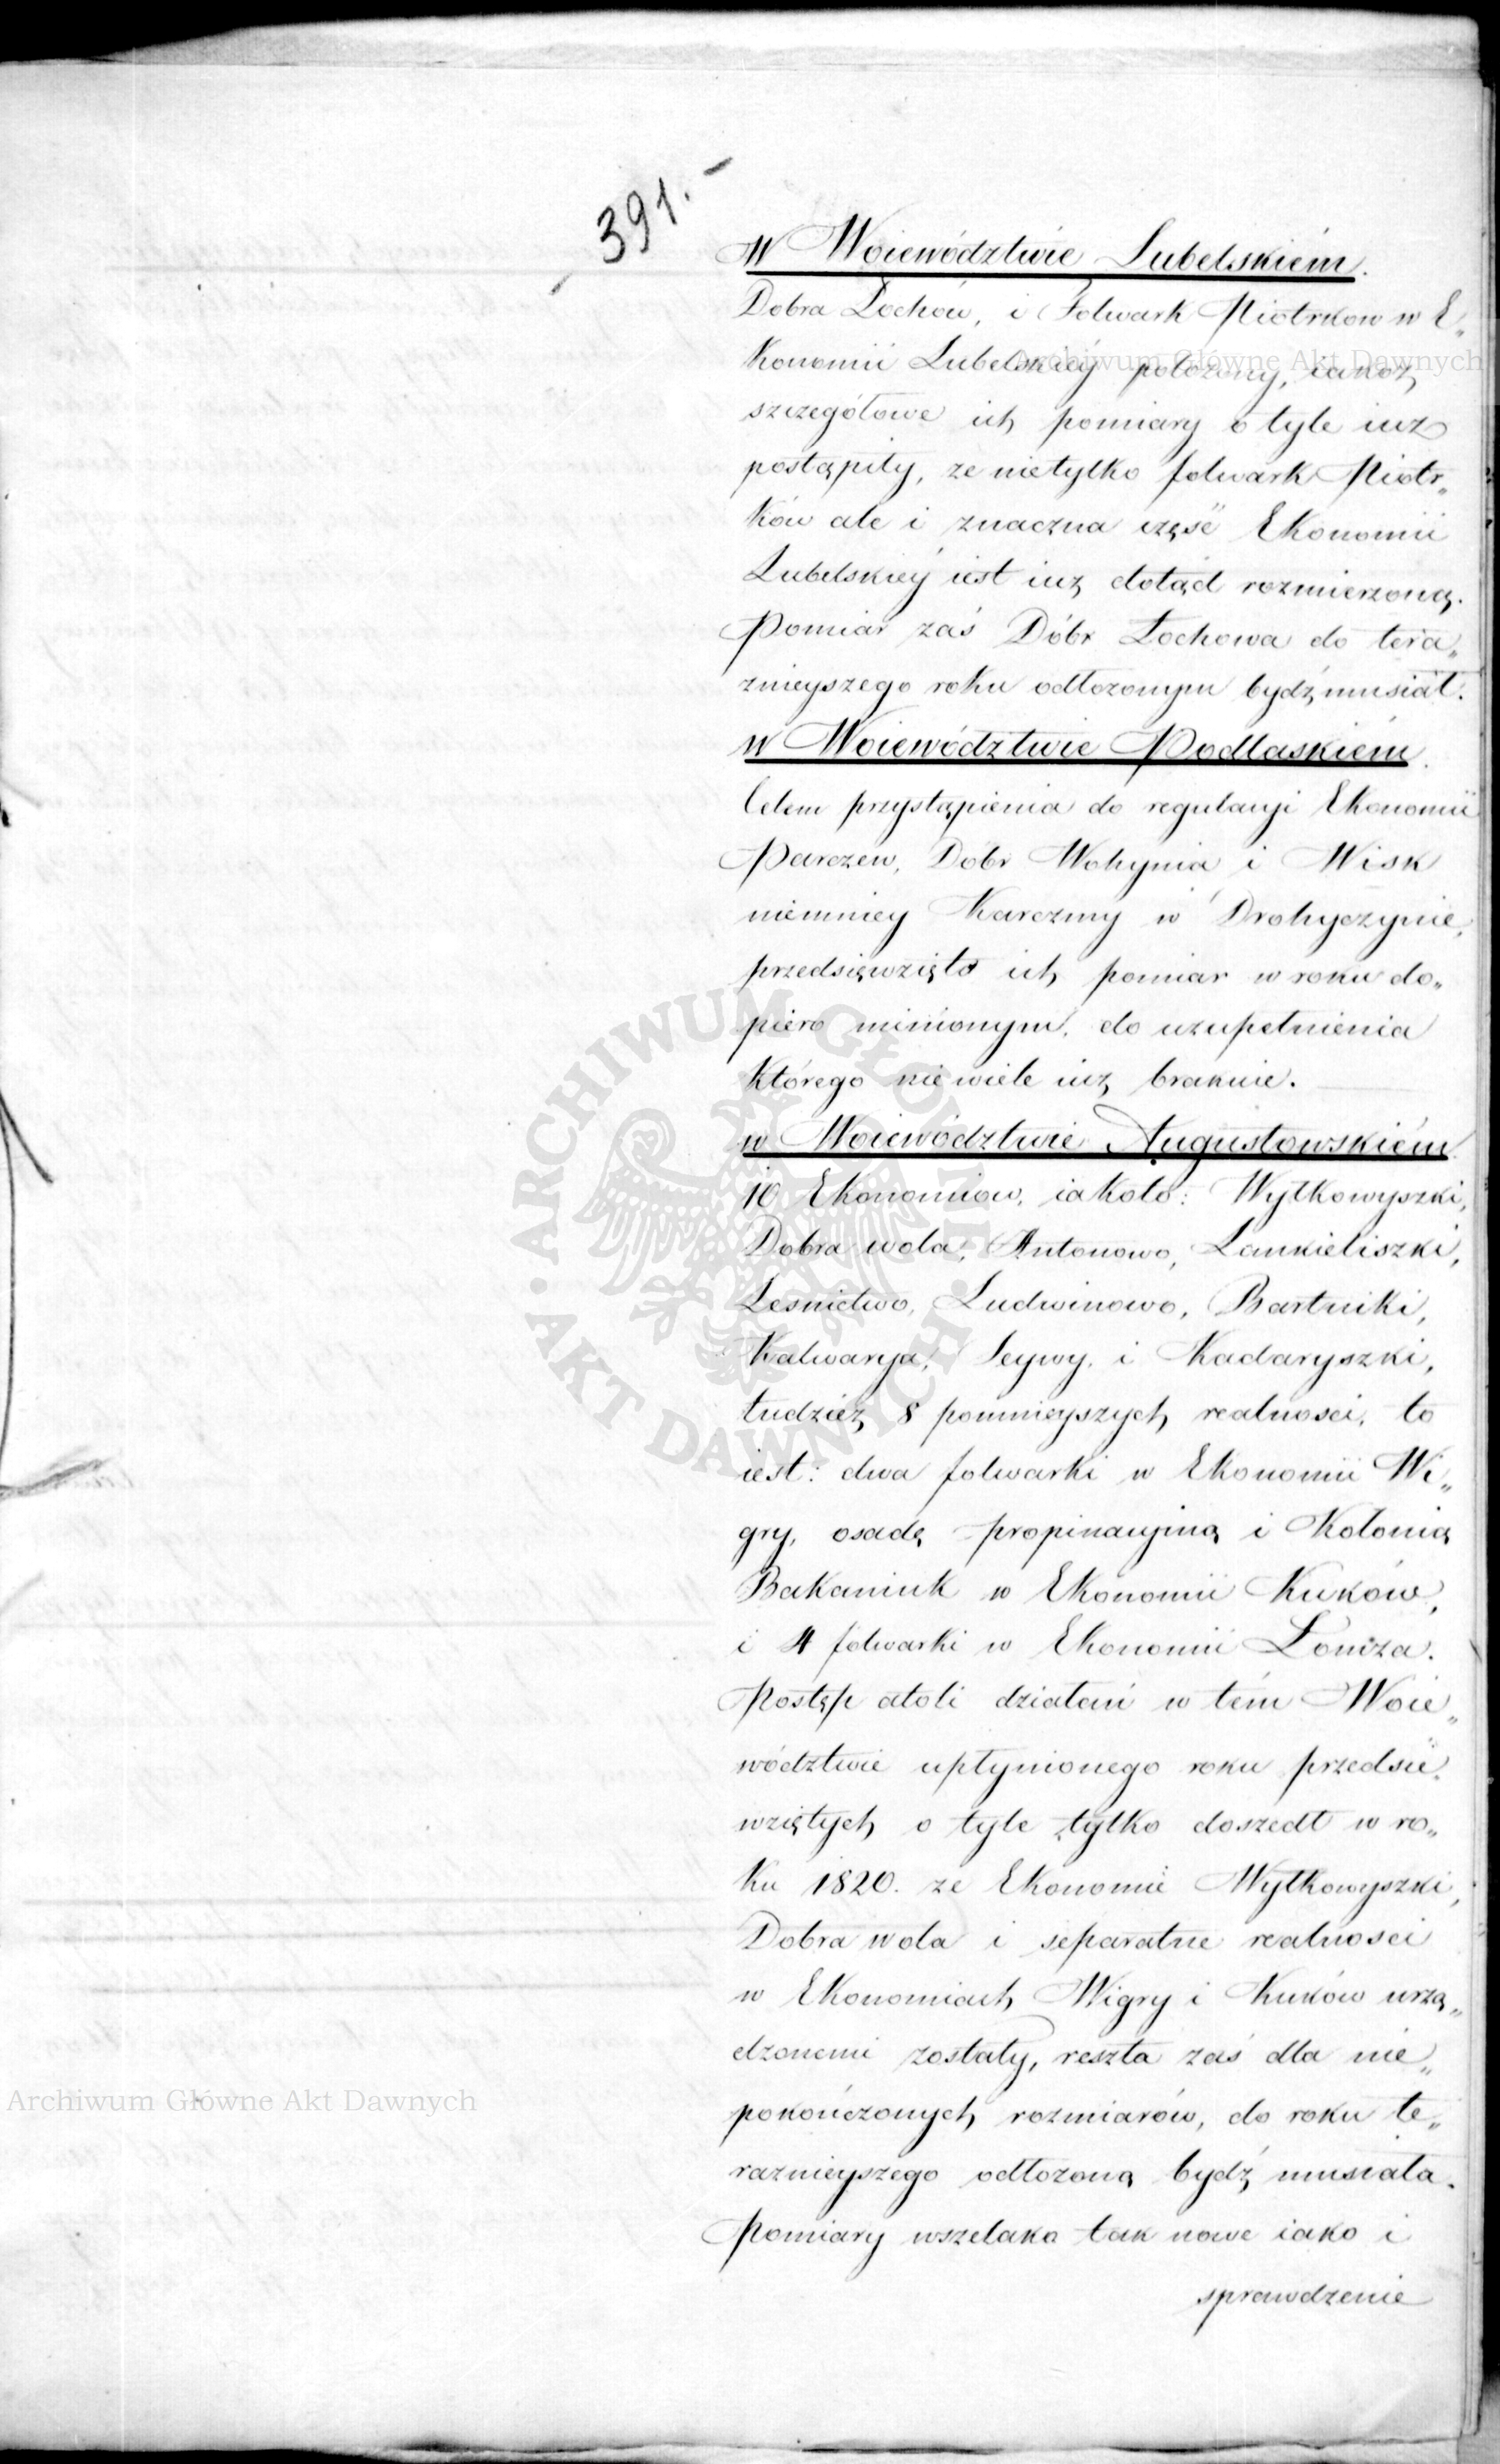 391.
W Woiewództwie Lubelskiém.
Dobra Łochów, i Folwark Piotrkow w E„
konomii Lubelskiéy położony, iakoż
szczegółowe ich pomiary o tyle iuż
postąpiły, że nietylko folwark Piotr„
ków ale i znaczna część Ekonomii
Lubelskiéy iest iuż dotąd rozmierzoną.
Pomiar zaś Dóbr Łochowa do tera„
znieyszego roku odłozonym bydź musiał.
w Woiewództwie Podlaskiém.
Celem przystąpienia do regulacyi Ekonomii
Parczew, Dóbr Wohynia i Wisk
niemniey Karczmy w Drohyczynie,
przedsięwzięto ich pomiar w roku do„
piero minionym, do uzupełnienia
którego niewiele iuż brakuie.
w Woiewództwie Augustowskiém
10 Ekonomiow, iakoto: Wyłkowyszki,
Dobra wola, Antonowo, Lankieliszki,
Lesnictwo, Ludwinowo, Bartniki,
Kalwarya, Seywy, i Kadaryszki,
tudzież 8 pomnieyszych realnosci, to
iest: dwa folwarki w Ekonomii Wi„
gry, osadę propinacyiną i Kolonią
Bakaniuk w Ekonomii Kuków,
i 4 folwarki w Ekonomii Łomza.
Postęp atoli działań w tém Woie„
wództwie upłynionego roku przedsię„
wziętych o tyle tylko doszedł w ro„
ku 1820. ze Ekonomie Wyłkowyszki,
Dobra wola i separatne realnosci
w Ekonomiach Wigry i Kuków urzą„
dzonemi zostały, reszta zaś dla nie„
pokończonych rozmiarów, do roku te„
raznieyszego odłozoną bydź musiała.
Pomiary wszelako tak nowe iako i
sprawdzenie
Archiwum Główne Akt Dawnych
Archiwum Główne Akt Dawnych
ARCHIWUM GŁÓWNE AKT DAWNYCH